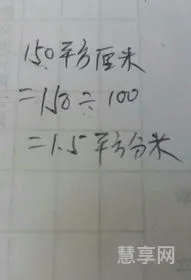 150平方厘米
=150÷100
=1.5平方分米
慧享网